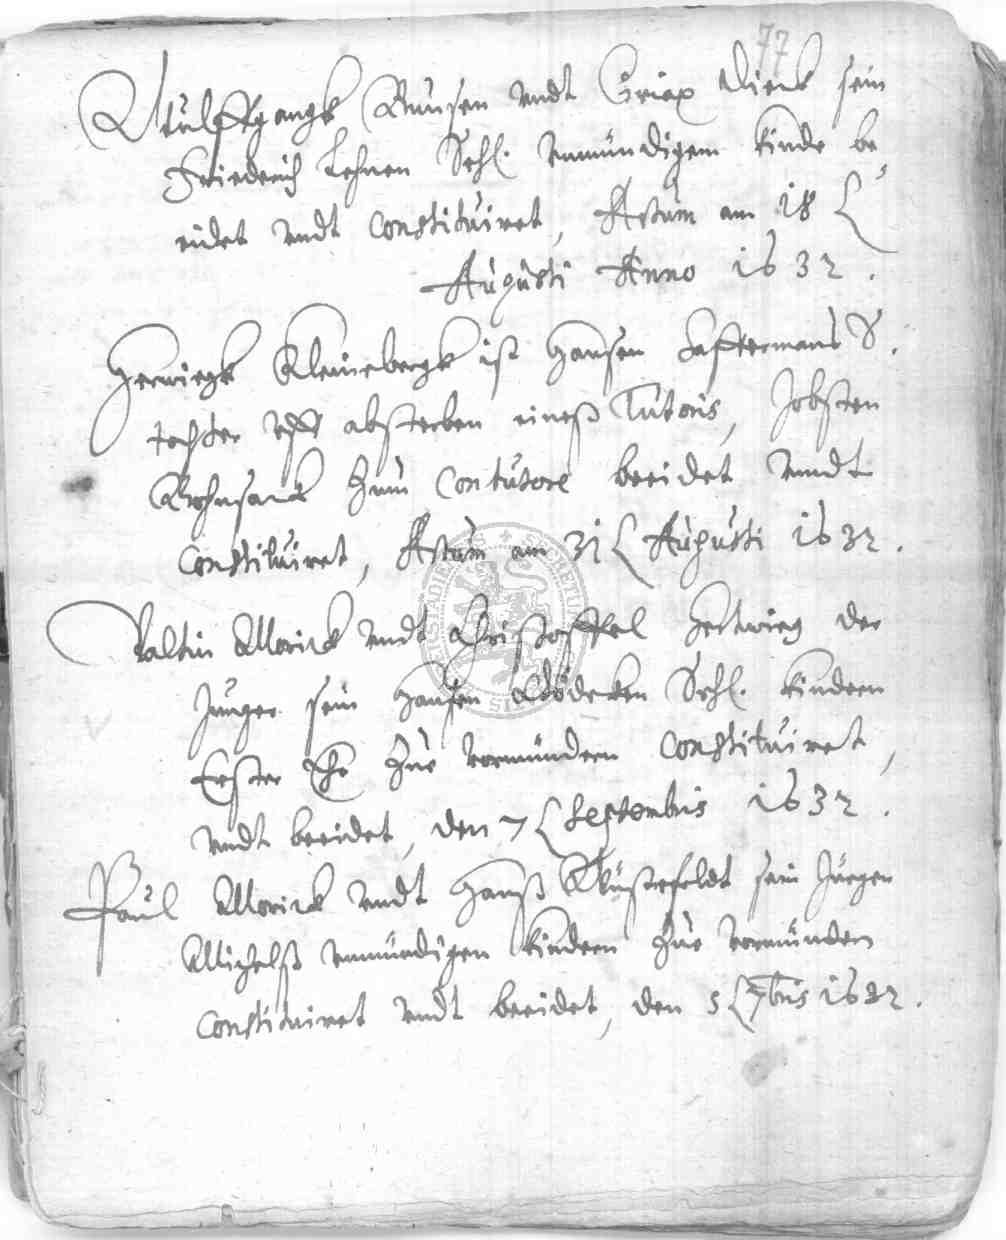 77
Wulffgangk Bunsen undt Ciriax Dieck sein
Friederich Lehnen Sehl. unmündigem kinde be
eidet undt constituiret, Actum am 18
Augusti Anno 1632.
Herwiegk Kleinebergk ist Hansen Saftermans S.
tochter uff absterben eineß Tutoris, Jobsten
zum Contutore beeidet undt
constituiret, Actum am 31 Augusti 1632.
Valtin Morick undt Christoffel Hertwieg der
Junger sein Hansen Bödecken Sehl. kindern
Erster Ehe zue vormündern constituiret,
undt beeidet, den 7 Septembris 1632.
Paul Morick undt Hanß Wüstefeldt sein Jürgen
Michelß unmündigen kindern zue vormünden
constituiret undt beeidet, den 5 7bris 1632.